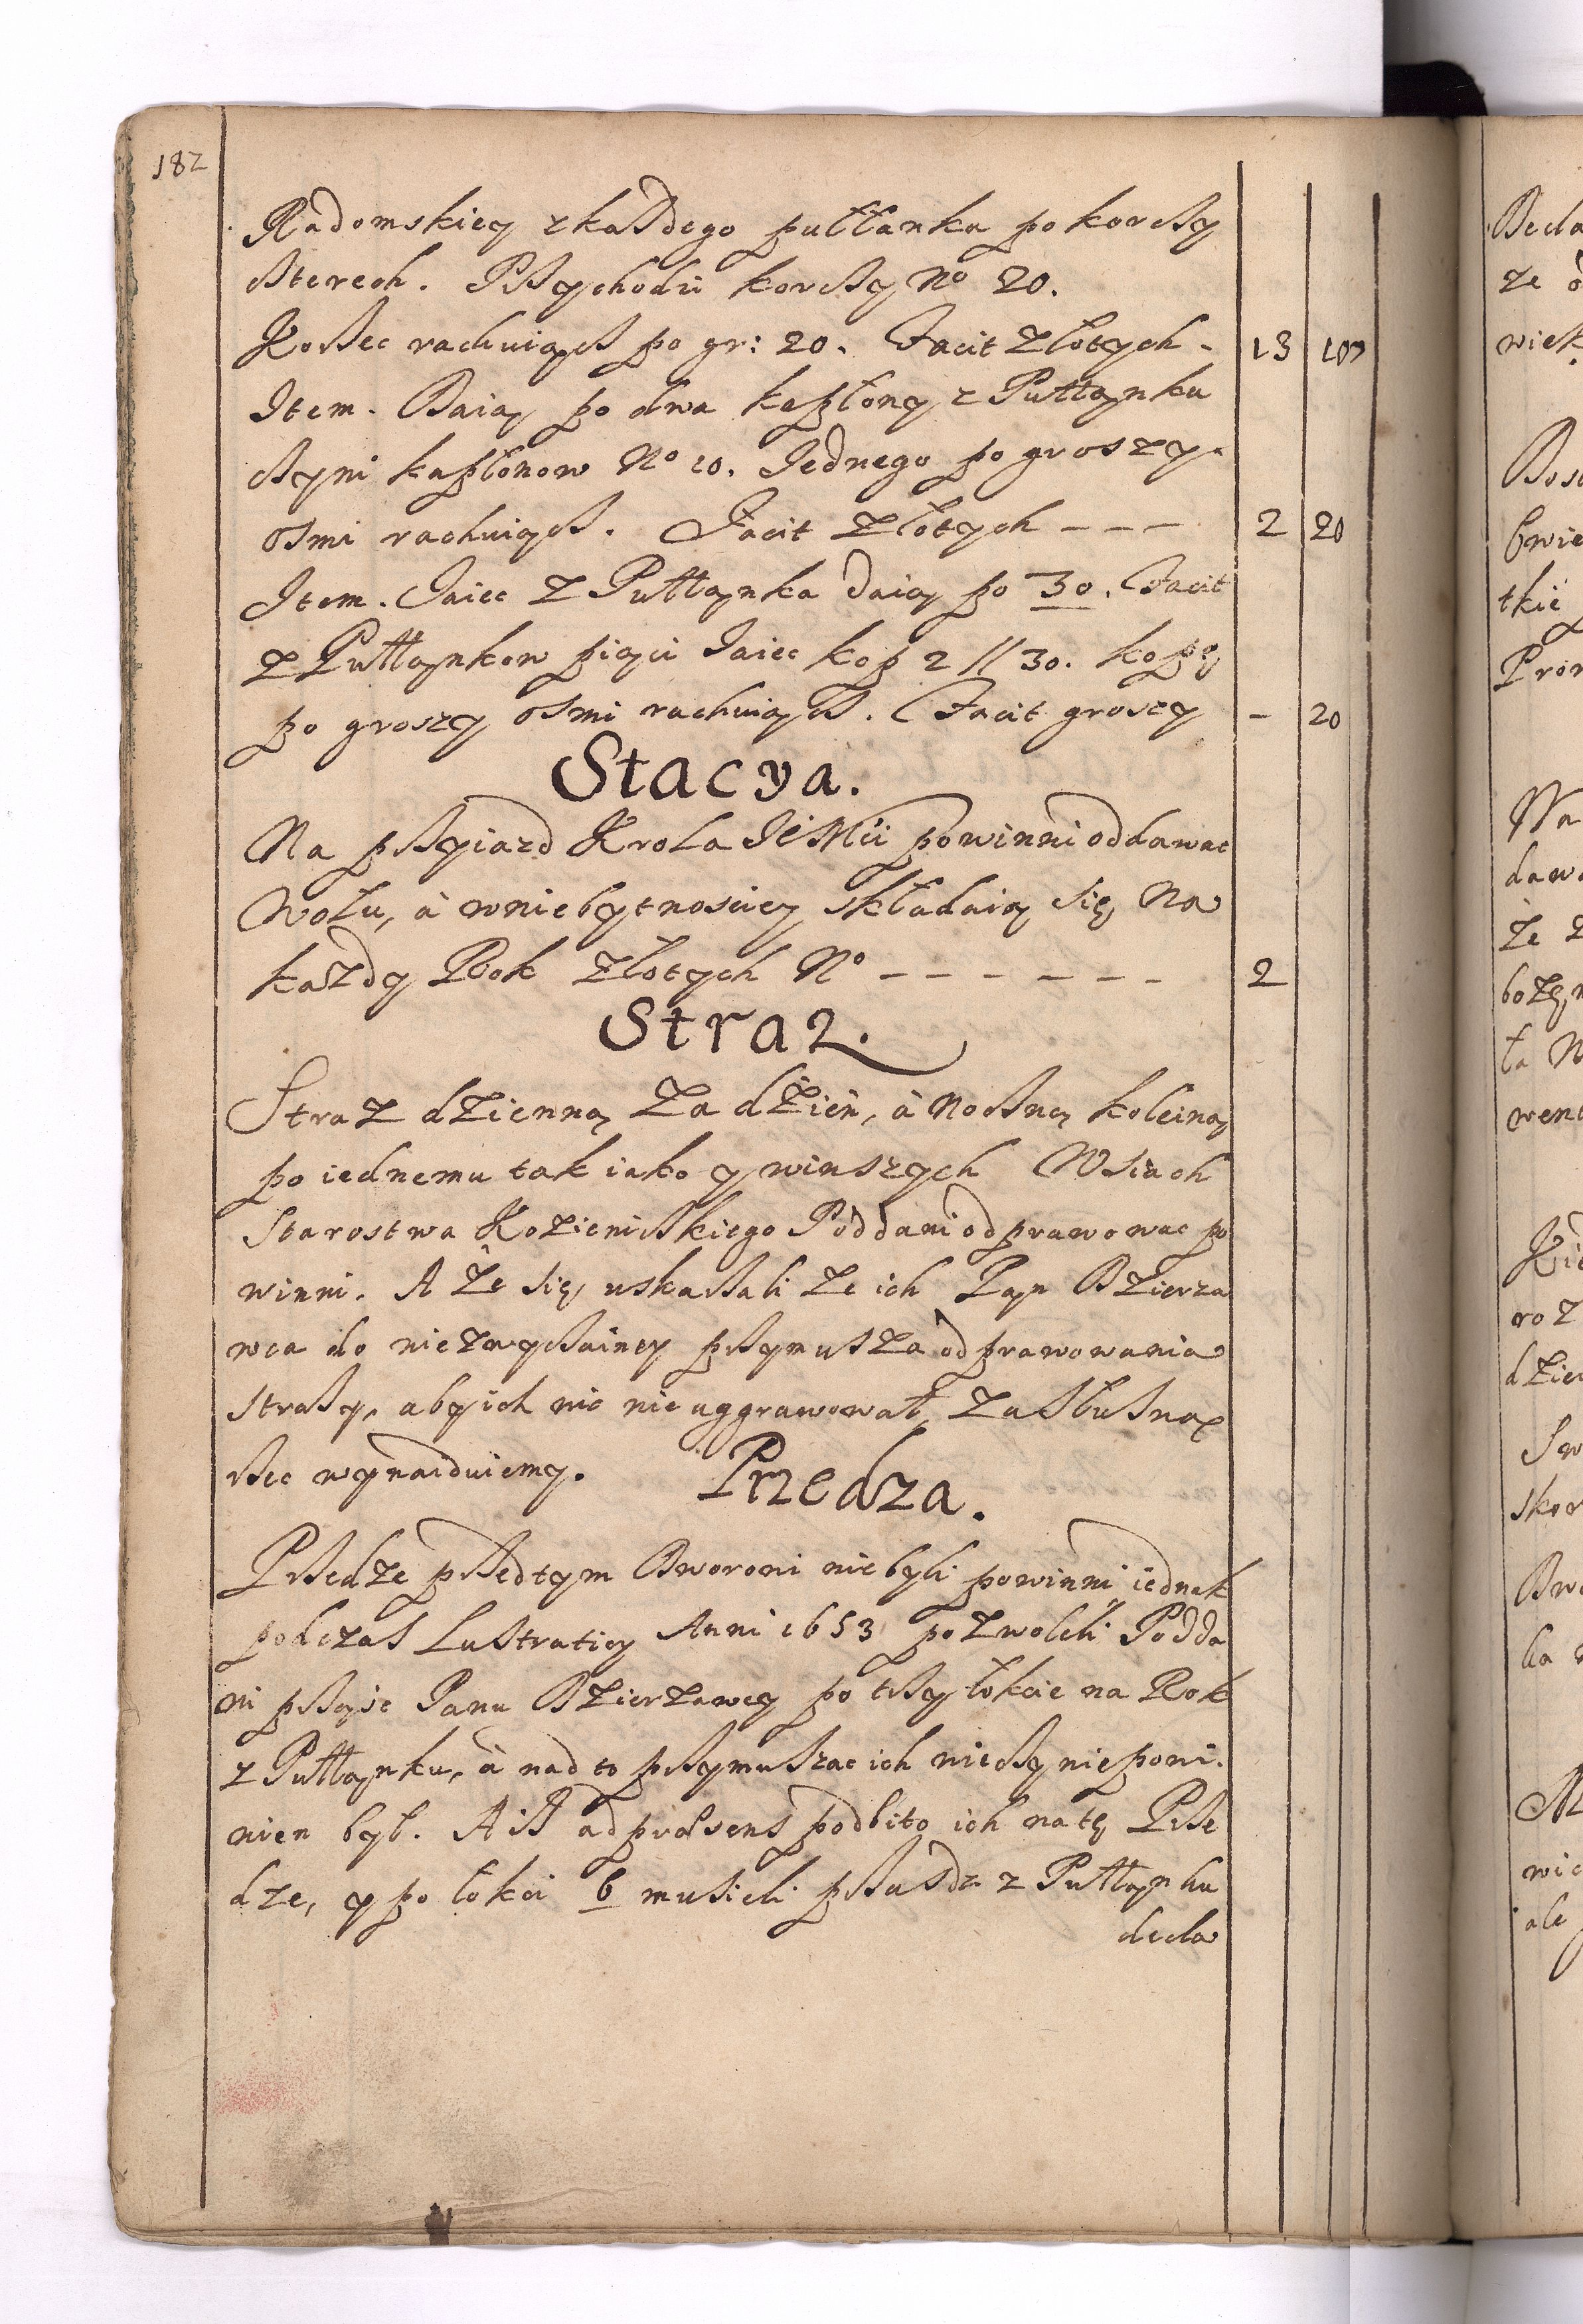 182
Radomskiey z każdego pułłanka po korczy
czterech. Przychodzi korczy No 20.
Korzec rachuiącz po gr: 20. Facit Złotych - 13 10
Item. Daią po dwa kapłony z Pułłanku
czyni kapłonow No 10. Jednego po groszy
osmi rachuiącz. Facit Złotych - - - 2 20
Item. Jaiec Z Pułłanka daią po 30. Facit
Z Pułłankow piąci Jaiec kop 2 // 30. kopę
po groszy osmi rachuiącz. Facit groszy - 20
Stacya.
Na przyiazd Krola JeMci powinni oddawac
Wołu, à w niebytnosciey składaią się, Na
każdy Rok Złotych No - - - - - - 2
Straż.
Straż dzienną Za dzień, à Noczną koleiną
po iednemu tak iako y w inszych Wsiach
Starostwa Kozienickiego Poddani odprawowac po
winni. A że się uskarzali że ich Pan Dzierza
wca do niezwyczainey przymusza odprawowania
straży, aby ich nic nie aggrawował, za słuszną
rzec wynaiduiemy.
Przedza.
Przedze przedtym Dworowi nie byli powinni iednak
podczas Lustratiey Anni 1653 pozwolili Podda
ni przysc Panu Dzierzawcy po trzy łokcie na Rok
z Pułłanku, à nad to przymuszac ich niczy nie powi.
nien był. A iż ad præsens podbito ich na tę Prze
dze, y po łokci 6 musieli prząsdz z Pułłanku
decla